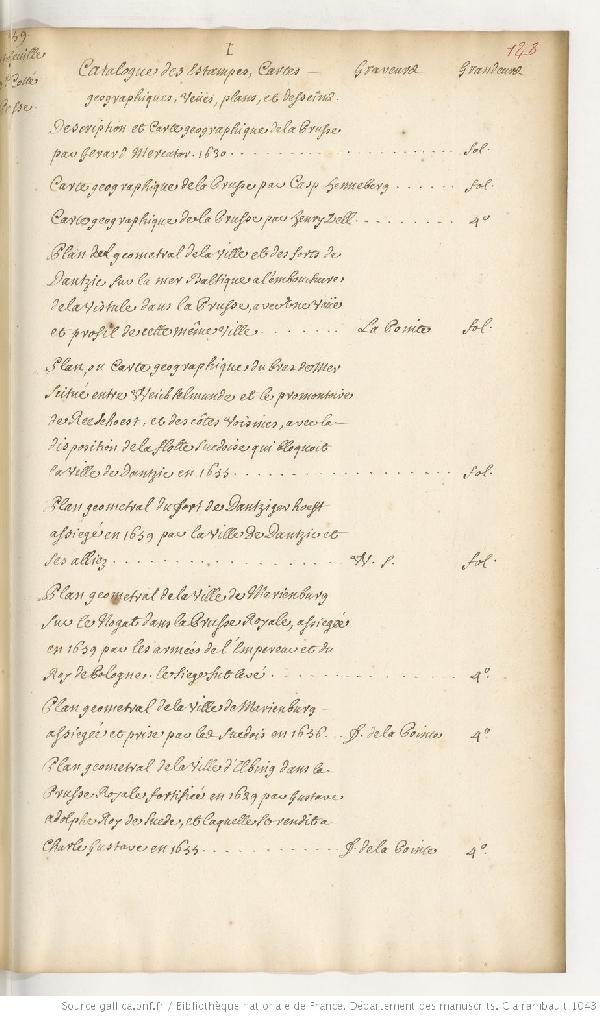 I
148
Catalogue des Estampes, Cartes — Graveurs Grandeurs
geographiques, Veües, plans, et desseins.
Description et Carte geographique de la Prusse
par Gerard Mercator. 1630. fol.
Carte geographique de la Prusse par Casp Henneberg fol.
Carte geographique de la Prusse par Henry Zell 4°
Plan geometral de la Ville et des forts de
Dantzic sur la mer Baltique a l'embouchure
de la Vistule dans la Prusse, avec une Veüe
et profil de cette même Ville La Pointe fol.
Plan, ou Carte geographique du bras de Mer
scitué entre Weichselmunde et le promontoire
de Reesehoeft, et des côtes Voisines, avec la
disposition de la flotte suedoise qui bloquoit
la Ville de Dantzic en 1655 fol.
Plan geometral du fort de Dantziger hoeft
assiegé en 1659 par la Ville de Dantzic et
ses alliez W. S. fol.
Plan geometral de la Ville de Marienburg
sur le Nogat dans la Prusse Royale, assiegée
en 1659 par les armées de l'Empereur et du
Roy de Pologne. le siege fut levé 4°
Plan geometral de la Ville de Marienburg
assiegée et prise par les Suedois en 1656. F. de la Pointe 4°
Plan geometral de la Ville d'Elbing dans la
Prusse Royale fortifiée en 1629 par Gustave
adolphe Roy de Suede, et laquelle se rendit a
Charle Gustave en 1655 F. de la Pointe 4°
Source gallica.bnf.fr / Bibliothèque nationale de France. Département des manuscrits. Clairambault 1043